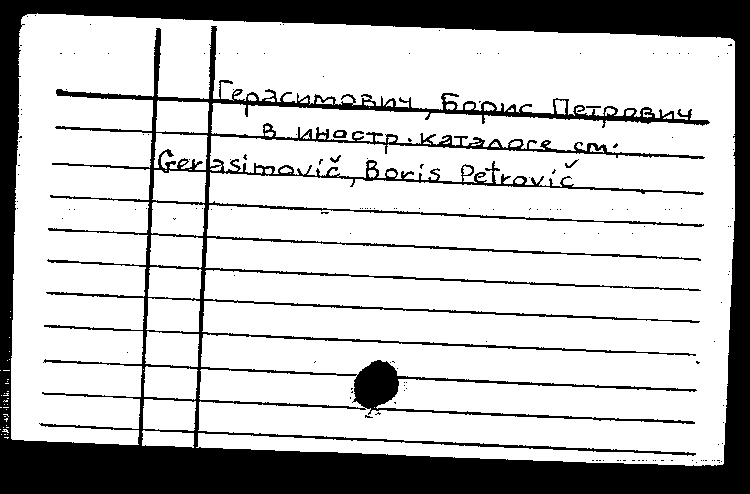 Герасимович, Борис Петрович
в иностр. каталоге см:
Gerasimovič, Boris Petrovič